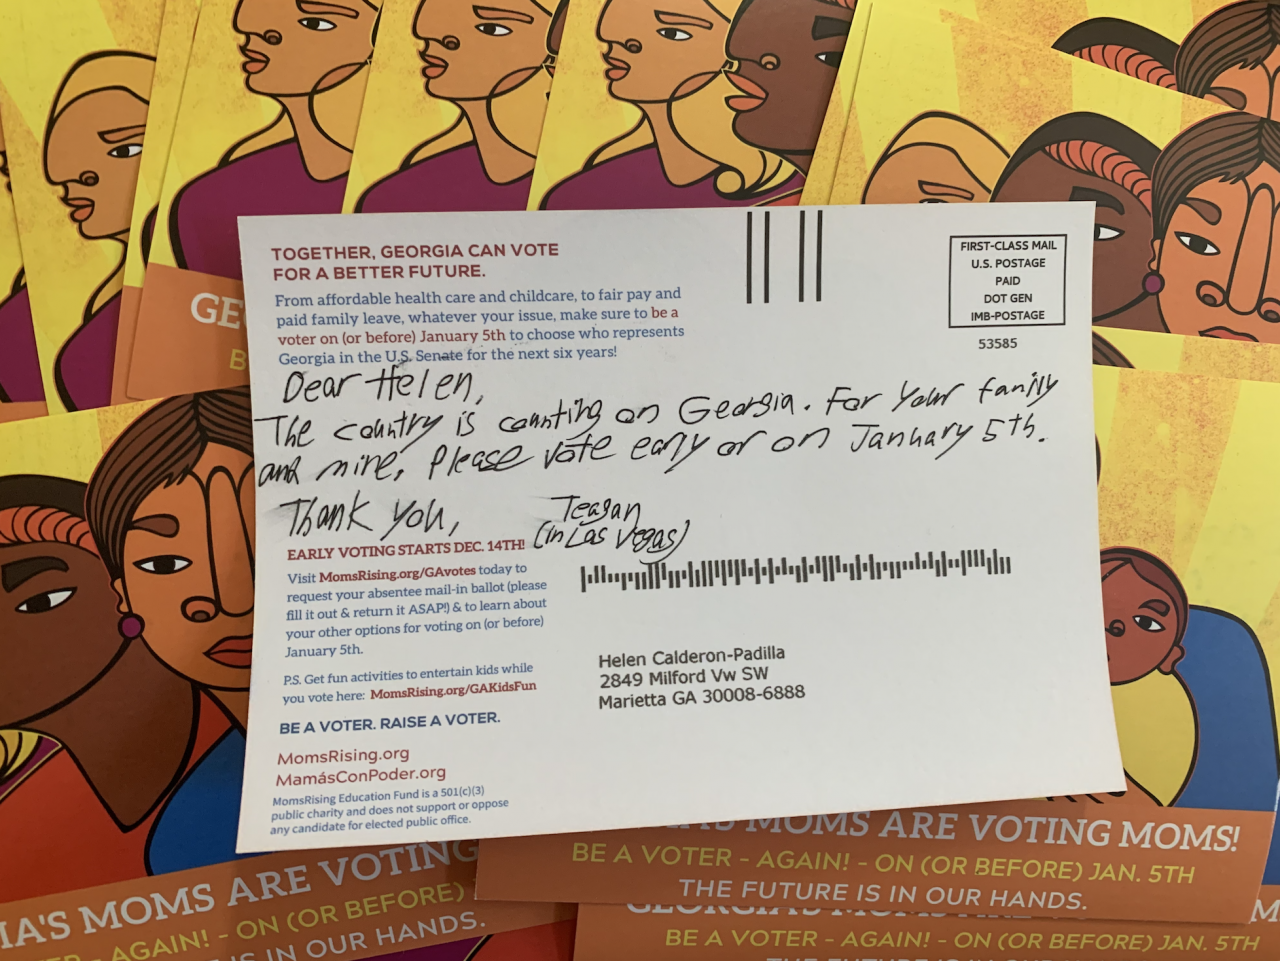 TOGETHER, GEORGIA CAN VOTE
FOR A BETTER FUTURE.
From affordable health care and childcare, to fair pay and
paid family leave, whatever your issue, make sure to be a
voter on (or before) January 5th to choose who represents
Georgia in the U.S. Senate for the next six years!
FIRST-CLASS MAIL
U.S. POSTAGE
PAID
DOT GEN
IMB-POSTAGE
53585
Dear Helen,
The country is counting on Georgia. For your family
and mine, please vote early or on January 5th.
Thank you,
Teagan
(in Las Vegas)
EARLY VOTING STARTS DEC. 14TH!
Visit MomsRising.org/GAvotes today to
request your absentee mail-in ballot (please
fill it out & return it ASAP!) & to learn about
your other options for voting on (or before)
January 5th.
P.S. Get fun activities to entertain kids while
you vote here: MomsRising.org/GAKidsFun
BE A VOTER. RAISE A VOTER.
MomsRising.org
MamásConPoder.org
MomsRising Education Fund is a 501(c)(3)
public charity and does not support or oppose
any candidate for elected public office.
Helen Calderon-Padilla
2849 Milford Vw SW
Marietta GA 30008-6888
GE
B
IA'S MOMS ARE VOTING
TER - AGAIN! - ON (OR BEFORE)
IS IN OUR HANDS.
IA'S MOMS ARE VOTING MOMS!
BE A VOTER - AGAIN! - ON (OR BEFORE) JAN. 5TH
THE FUTURE IS IN OUR HANDS.
BE A VOTER - AGAIN! - ON (OR BEFORE) JAN. 5TH